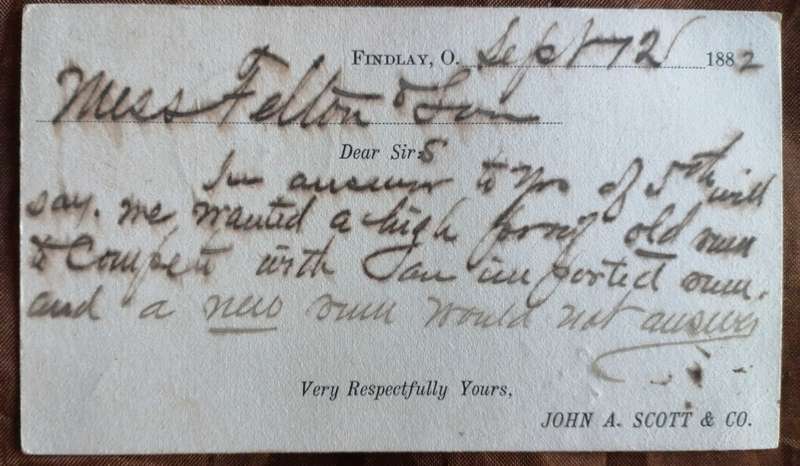 FINDLAY, O. Sept 12 1882
Mess Felton & Son
Dear Sirs
In answer to Yrs of 5th will
say. we wanted a high proof old rum
to Compete with an imported rum.
and a new rum would not answer
Very Respectfully Yours,
JOHN A. SCOTT & CO.